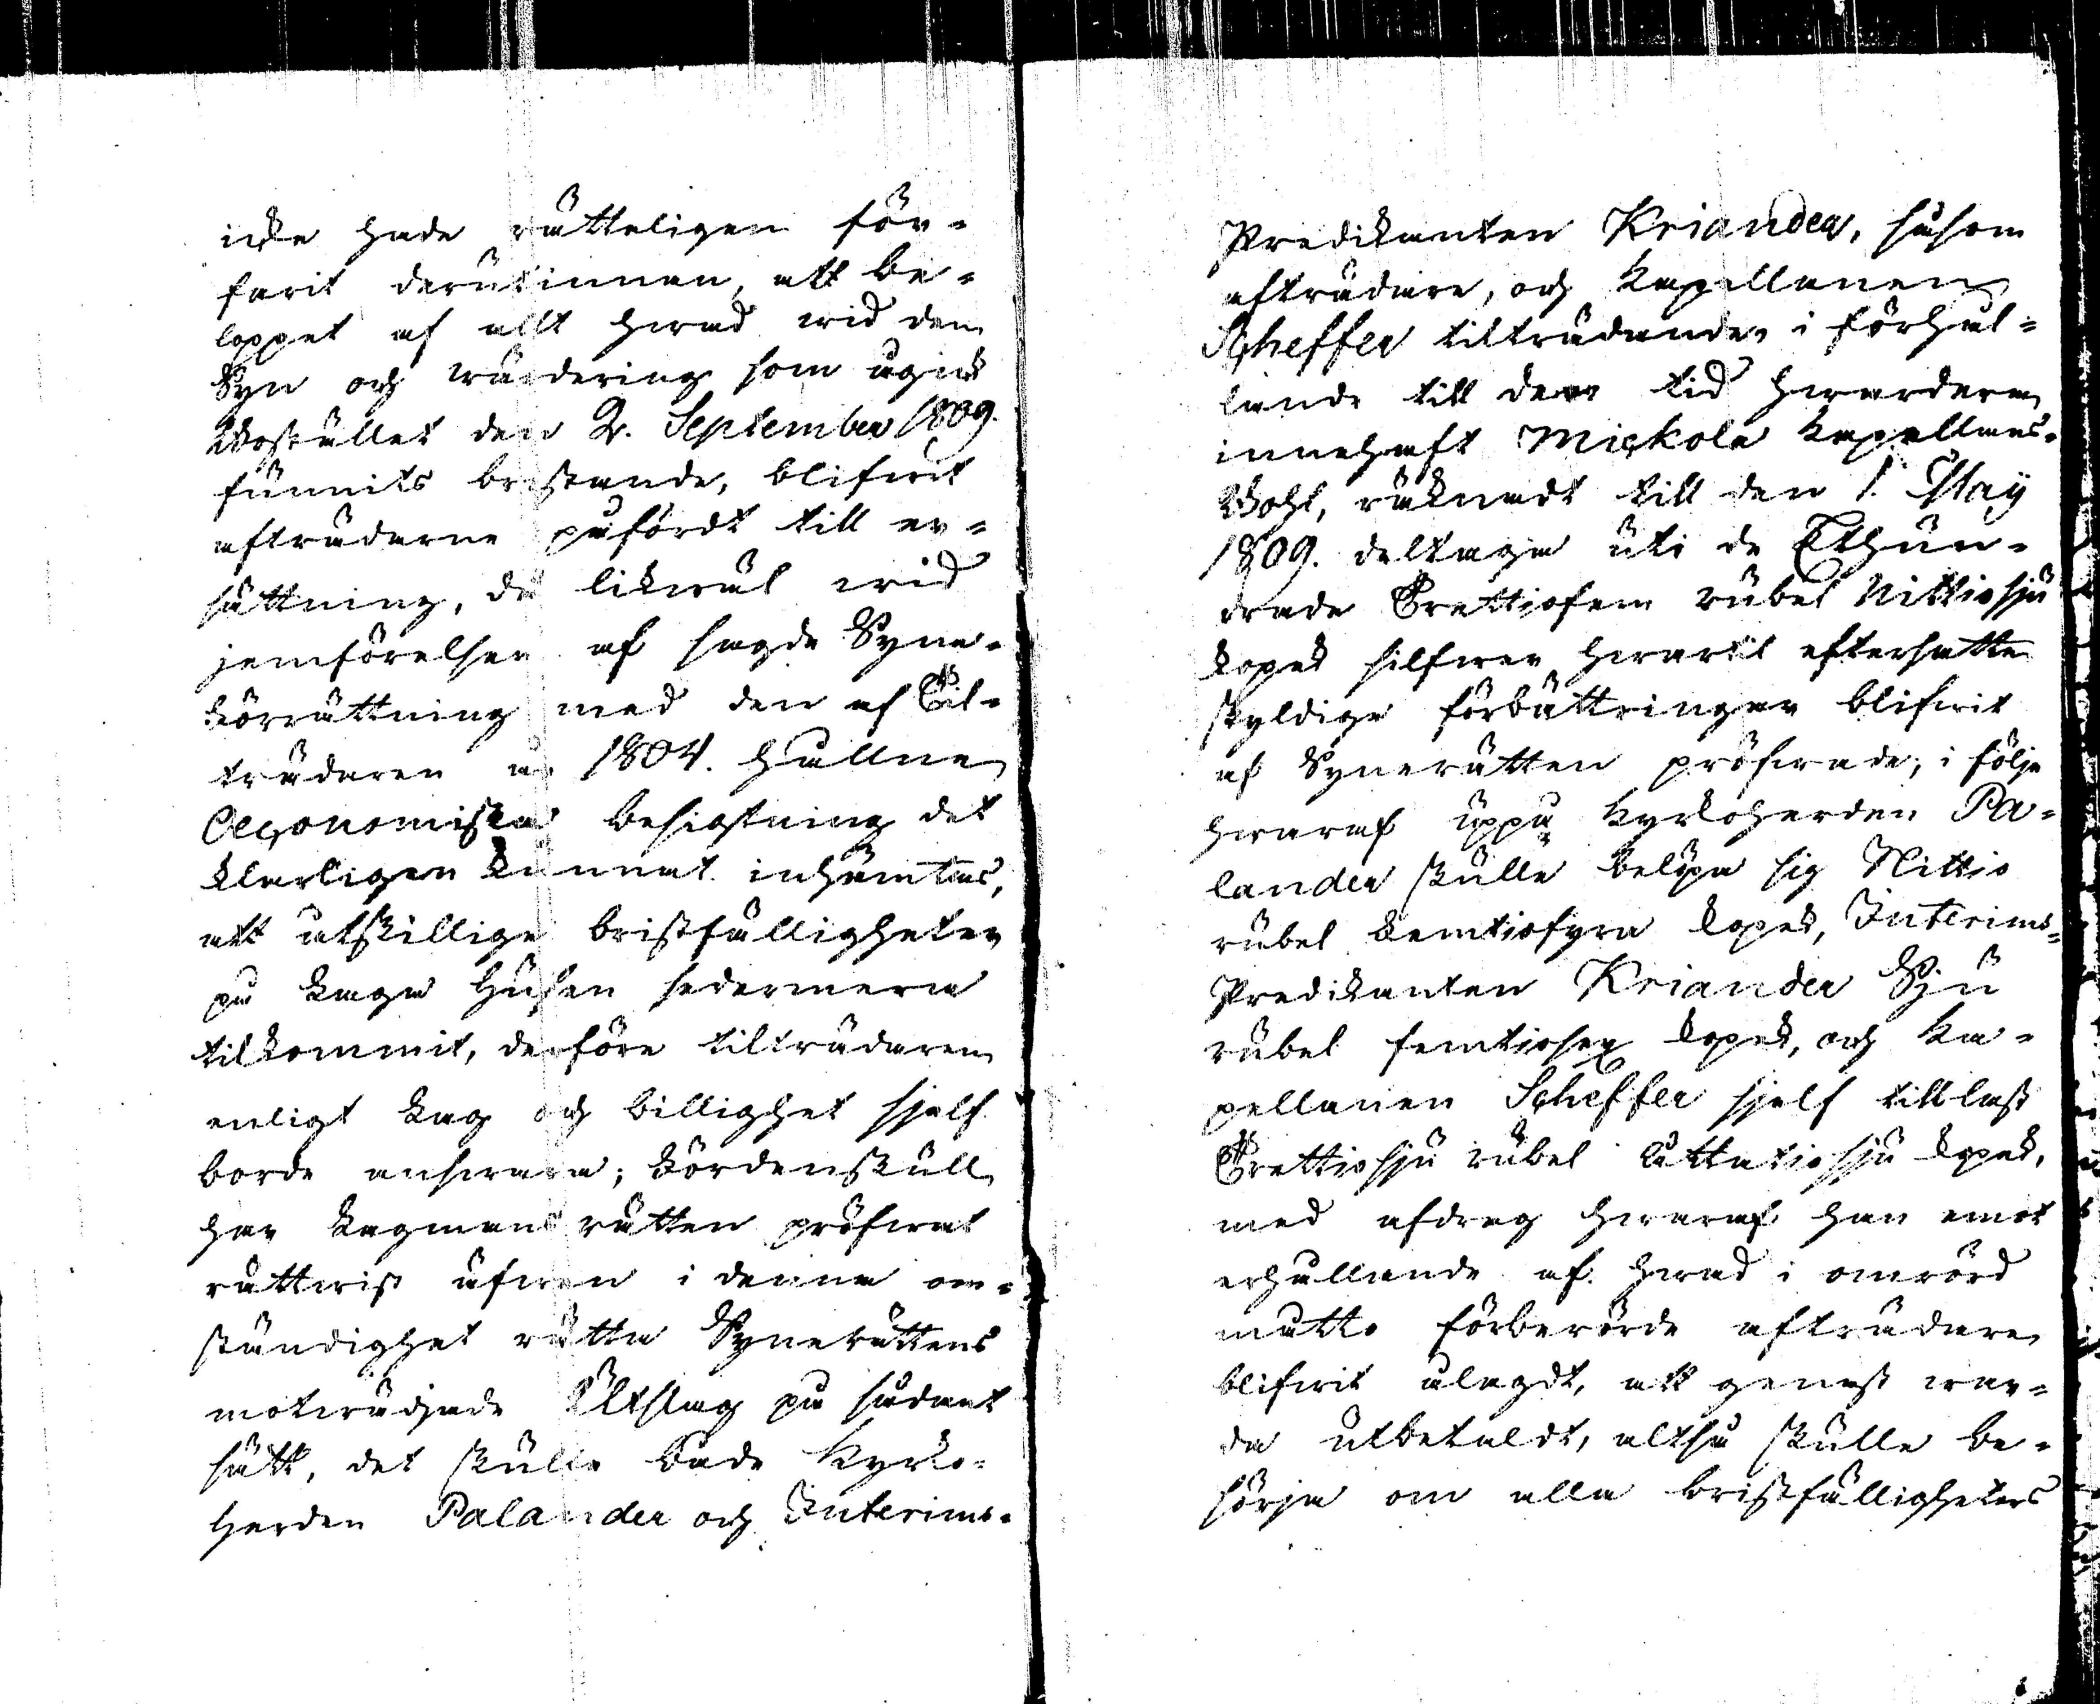 icke hade rätteligen för-
farit derutinnan, att be-
loppet af allt hwad wid den
Syn och wärdering som å
Bostället den 2. September 1809.
funnits bristande, blifwit
afträdarne påfördt till er-
sättning, då likwäl wid
jemförelsen af sagde Syne-
förrättning med den af Til-
trädaren år 1804. hållne
Oeconomiska besigtning det
klarligen kunnat inhämtas,
att åtskillige bristfälligheter
på Laga Husen sedermera
tilkommit, derföre tilträdaren
enligt Lag och billighet sjelf
borde answara; fördenskull
har Lagmans rätten pröfwat
rättwist äfwen i denna om-
ständighet rätta Synerättens
motwädjade Utslag på sådant
sätt, det skulle både Kyrko-
herden Palander och Interims-
Predikanten Kriander, såsom
afträdare, och Kapellanen
Scheffer tilträdande, i förhål-
lande till den tid hwardera
innehaft Mickola Kapellans-
Bohl, räknadt till den 1. May
1809. deltaga uti de Ethun-
drade Trettiofem rubel Nittiosju
kopek silfwer, hwartil eftersatte
skyldige förbättringar blifwit
af Synerätten pröfwade; i följe
hwaraf uppå Kyrkoherden Pa-
lander skulle belöpa sig Nittio
rubel femtiofyra kopek, Interims-
Predikanten Kriander Sju
rubel femtiosex kopek, och Ka-
pellanen Scheffer sjelf tillast
Trettiosju rubel åttatiosju kopek,
med afdrag hwaraf han emot
erhållande af hwad i omrörd
måtto förberörde afträdare
blifwit ålagdt, att genast war-
da utbetaldt, altså skulle be-
sörja om alla bristfälligheters